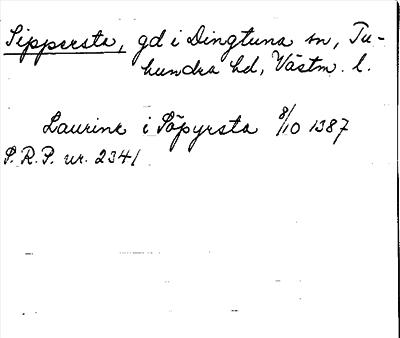 Sippersta, gd i Dingtuna sn, Tu-
hundra hd, Västm. l.
Laurinz i Söpyrsta 8/10 1387
S.R.P. nr. 2341